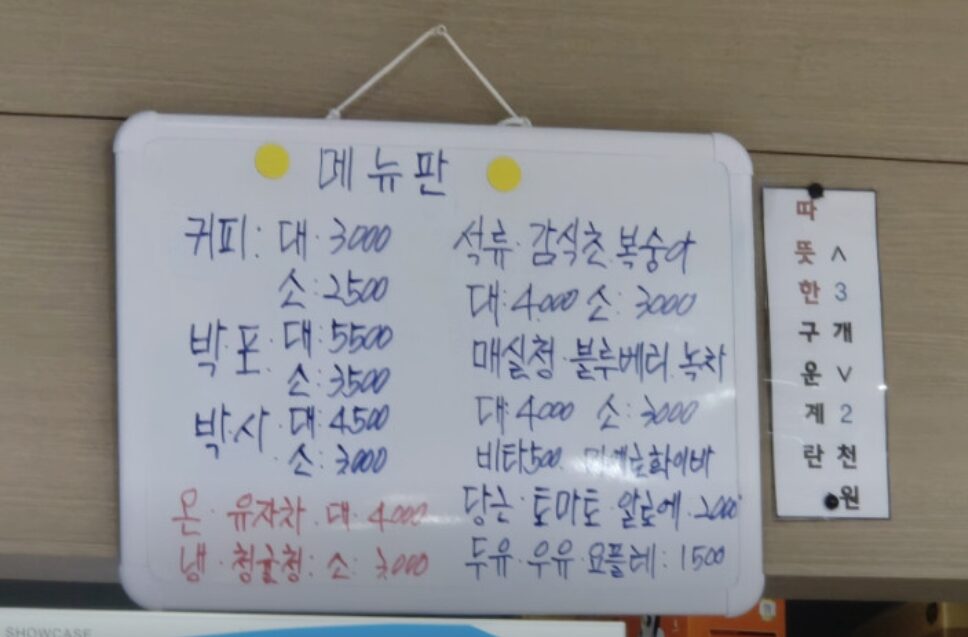 메뉴판
커피: 대·3000
소:2500
박·포·대:5500
소:3500
박·사·대:4500
소:3000
온·유자차·대·4000
냉·청귤청:소:3000
석류·감식초·복숭아
대:4000 소:3000
매실청·블루베리·녹차
대:4000 소:3000
비타500 화이바
당근·토마토·알로에·2000
두유·우유·요플레:1500
따뜻한구운계란
<3개>2천원
SHOWCASE